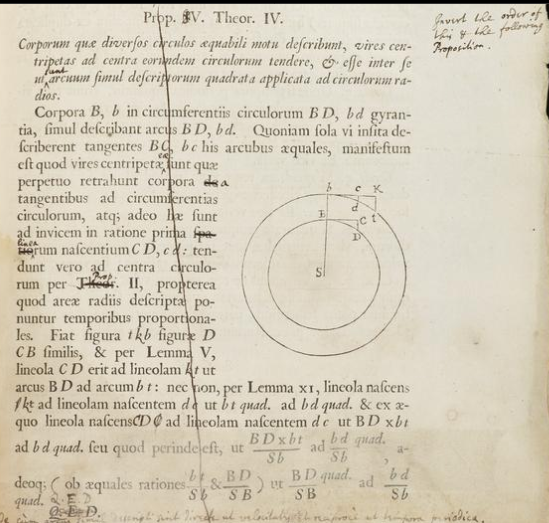 Prop. IV. Theor. IV.
Invert the order of
this & the following
Proposition.
Corporum quæ diversos circulos æquabili motu describunt, vires cen-
tripetas ad centra eorundem circulorum tendere, & esse inter se
ut sunt arcuum simul descriptorum quadrata applicata ad circulorum ra-
dios.
Corpora B, b in circumferentiis circulorum BD, bd gyran-
tia, simul describant arcus BD, bd. Quoniam sola vi insita de-
scriberent tangentes BC, bc his arcubus æquales, manifestum
est quod vires centripetæ sunt quæ
perpetuo retrahunt corpora de a
tangentibus ad circumferentias
circulorum, atq; adeo hæ sunt
ad invicem in ratione prima spa-
tiorum nascentium CD, cd: ten-
dunt vero ad centra circulo-
rum per Theor. Prop. II, propterea
quod areæ radiis descriptæ po-
nuntur temporibus proportiona-
les. Fiat figura tkb figuræ D
CB similis, & per Lemma V,
lineola CD erit ad lineolam kt ut
arcus BD ad arcum bt: nec non, per Lemma XI, lineola nascens
tkt ad lineolam nascentem dc ut bt quad. ad bd quad. & ex æ-
quo lineola nascens CD ad lineolam nascentem dc ut BD x bt
ad bd quad. seu quod perinde est, ut BD x bt / Sb ad bd quad. / Sb, a-
deoq; ( ob æquales rationes bt / Sb & BD / SB ) ut BD quad. / SB ad bd / Sb
quad. Q. E. D
Q. E. D.
b c K
d t
B C
D
S